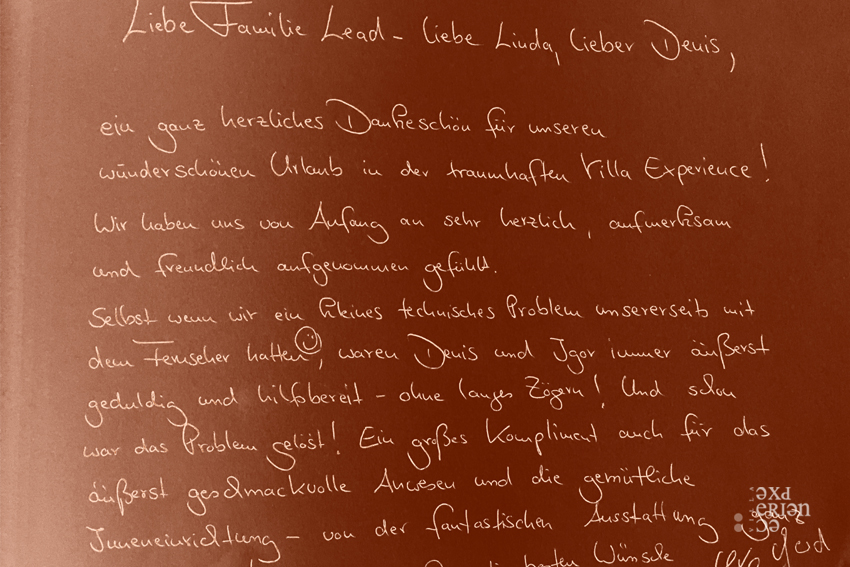 Liebe Familie Lead – liebe Linda, lieber Denis,
ein ganz herzliches Dankeschön für unseren
wünderschönen Urlaub in der traumhaften Villa Experience!
Wir haben uns von Anfang an sehr herzlich, aufmerksam
und freundlich aufgenommen gefühlt.
Selbst wenn wir ein kleines technisches Problem unsererseits mit
dem Fernseher hatten ☺, waren Denis und Igor immer äußerst
geduldig und hilfsbereit – ohne langes Zögern! Und schon
war das Problem gelöst! Ein großes Kompliment auch für das
äußerst geschmackvolle Anwesen und die gemütliche
Inneneinrichtung – von der fantastischen Ausstattung ganz
Wünsche